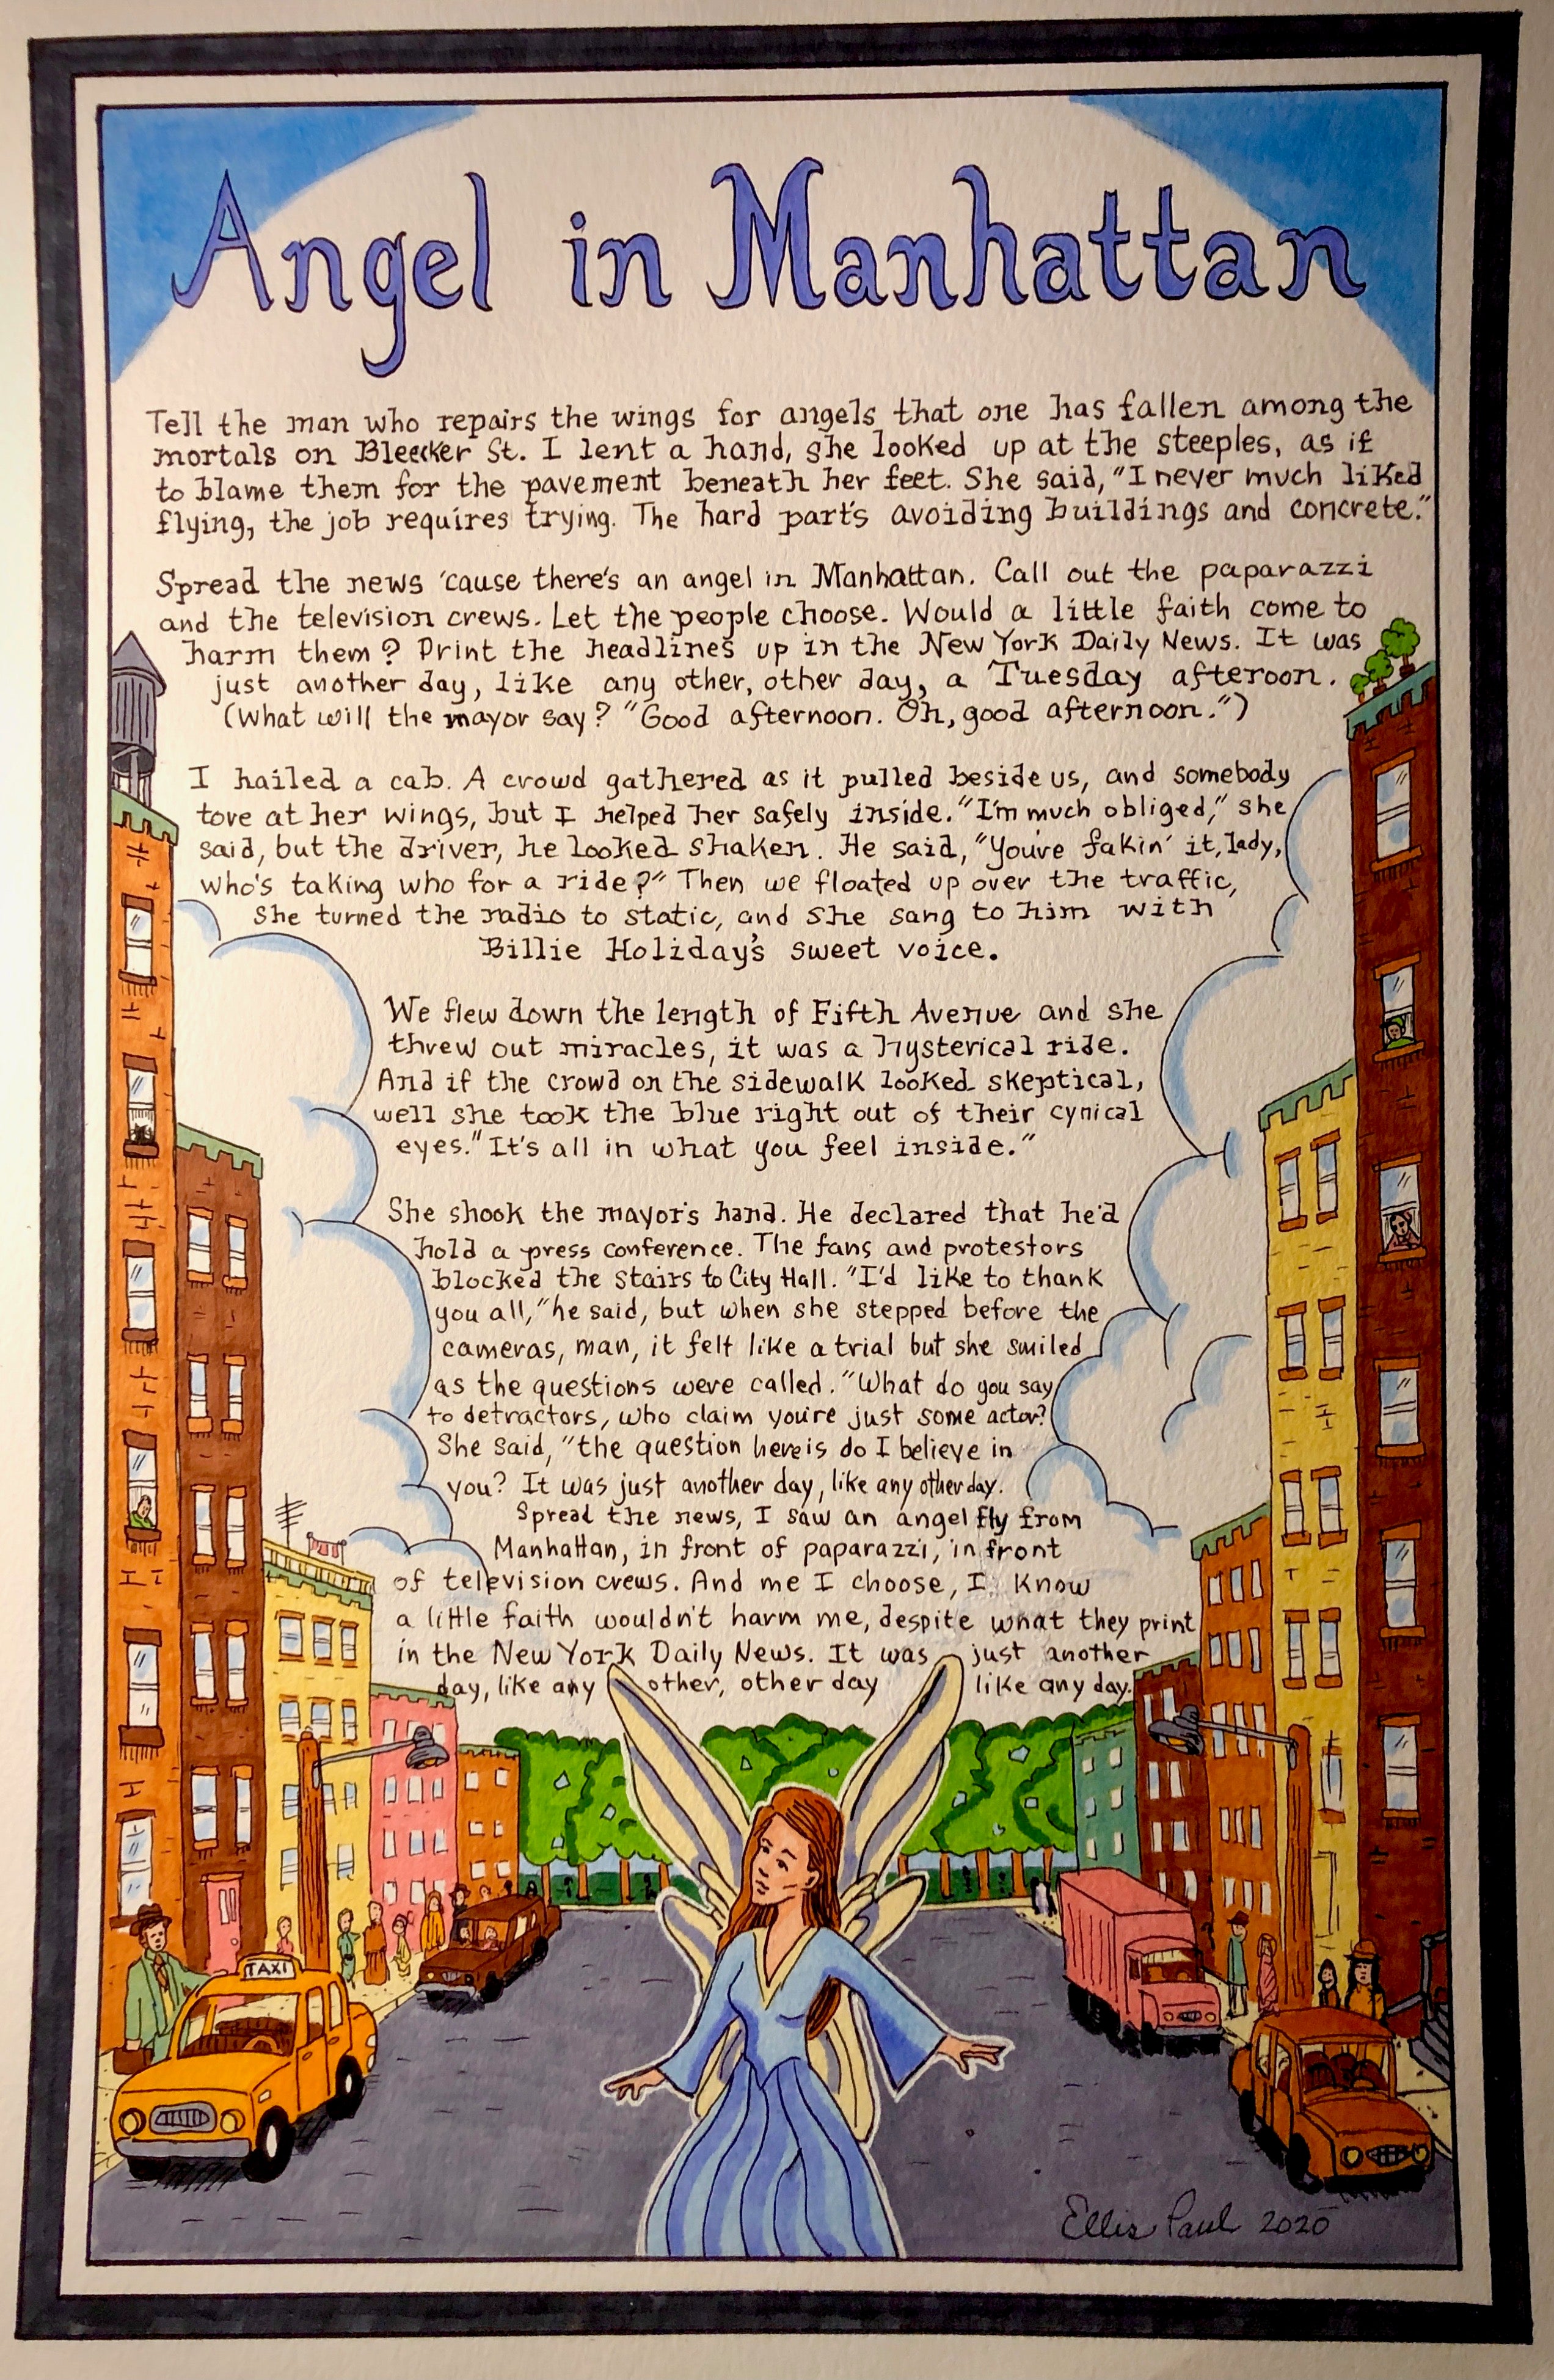 Angel in Manhattan
Tell the man who repairs the wings for angels that one has fallen among the
mortals on Bleecker St. I lent a hand, she looked up at the steeples, as if
to blame them for the pavement beneath her feet. She said, "I never much liked
flying, the job requires trying. The hard part's avoiding buildings and concrete."
Spread the news 'cause there's an angel in Manhattan. Call out the paparazzi
and the television crews. Let the people choose. Would a little faith come to
harm them? Print the headlines up in the New York Daily News. It was
just another day, like any other, other day, a Tuesday afteroon.
(What will the mayor say? "Good afternoon. Oh, good afternoon.")
I hailed a cab. A crowd gathered as it pulled beside us, and somebody
tore at her wings, but I helped her safely inside. "I'm much obliged," she
said, but the driver, he looked shaken. He said, "You're fakin' it, lady,
who's taking who for a ride?" Then we floated up over the traffic,
she turned the radio to static, and she sang to him with
Billie Holiday's sweet voice.
We flew down the length of Fifth Avenue and she
threw out miracles, it was a hysterical ride.
And if the crowd on the sidewalk looked skeptical,
well she took the blue right out of their cynical
eyes. "It's all in what you feel inside."
She shook the mayor's hand. He declared that he'd
hold a press conference. The fans and protestors
blocked the stairs to City Hall. "I'd like to thank
you all," he said, but when she stepped before the
cameras, man, it felt like a trial but she smiled
as the questions were called. "What do you say
to detractors, who claim you're just some actor?
She said, "the question here is do I believe in
you? It was just another day, like any other day.
Spread the news, I saw an angel fly from
Manhattan, in front of paparazzi, in front
of television crews. And me I choose, I know
a little faith wouldn't harm me, despite what they print
in the New York Daily News. It was just another
day, like any other, other day like any day.
TAXI
Ellis Paul 2020